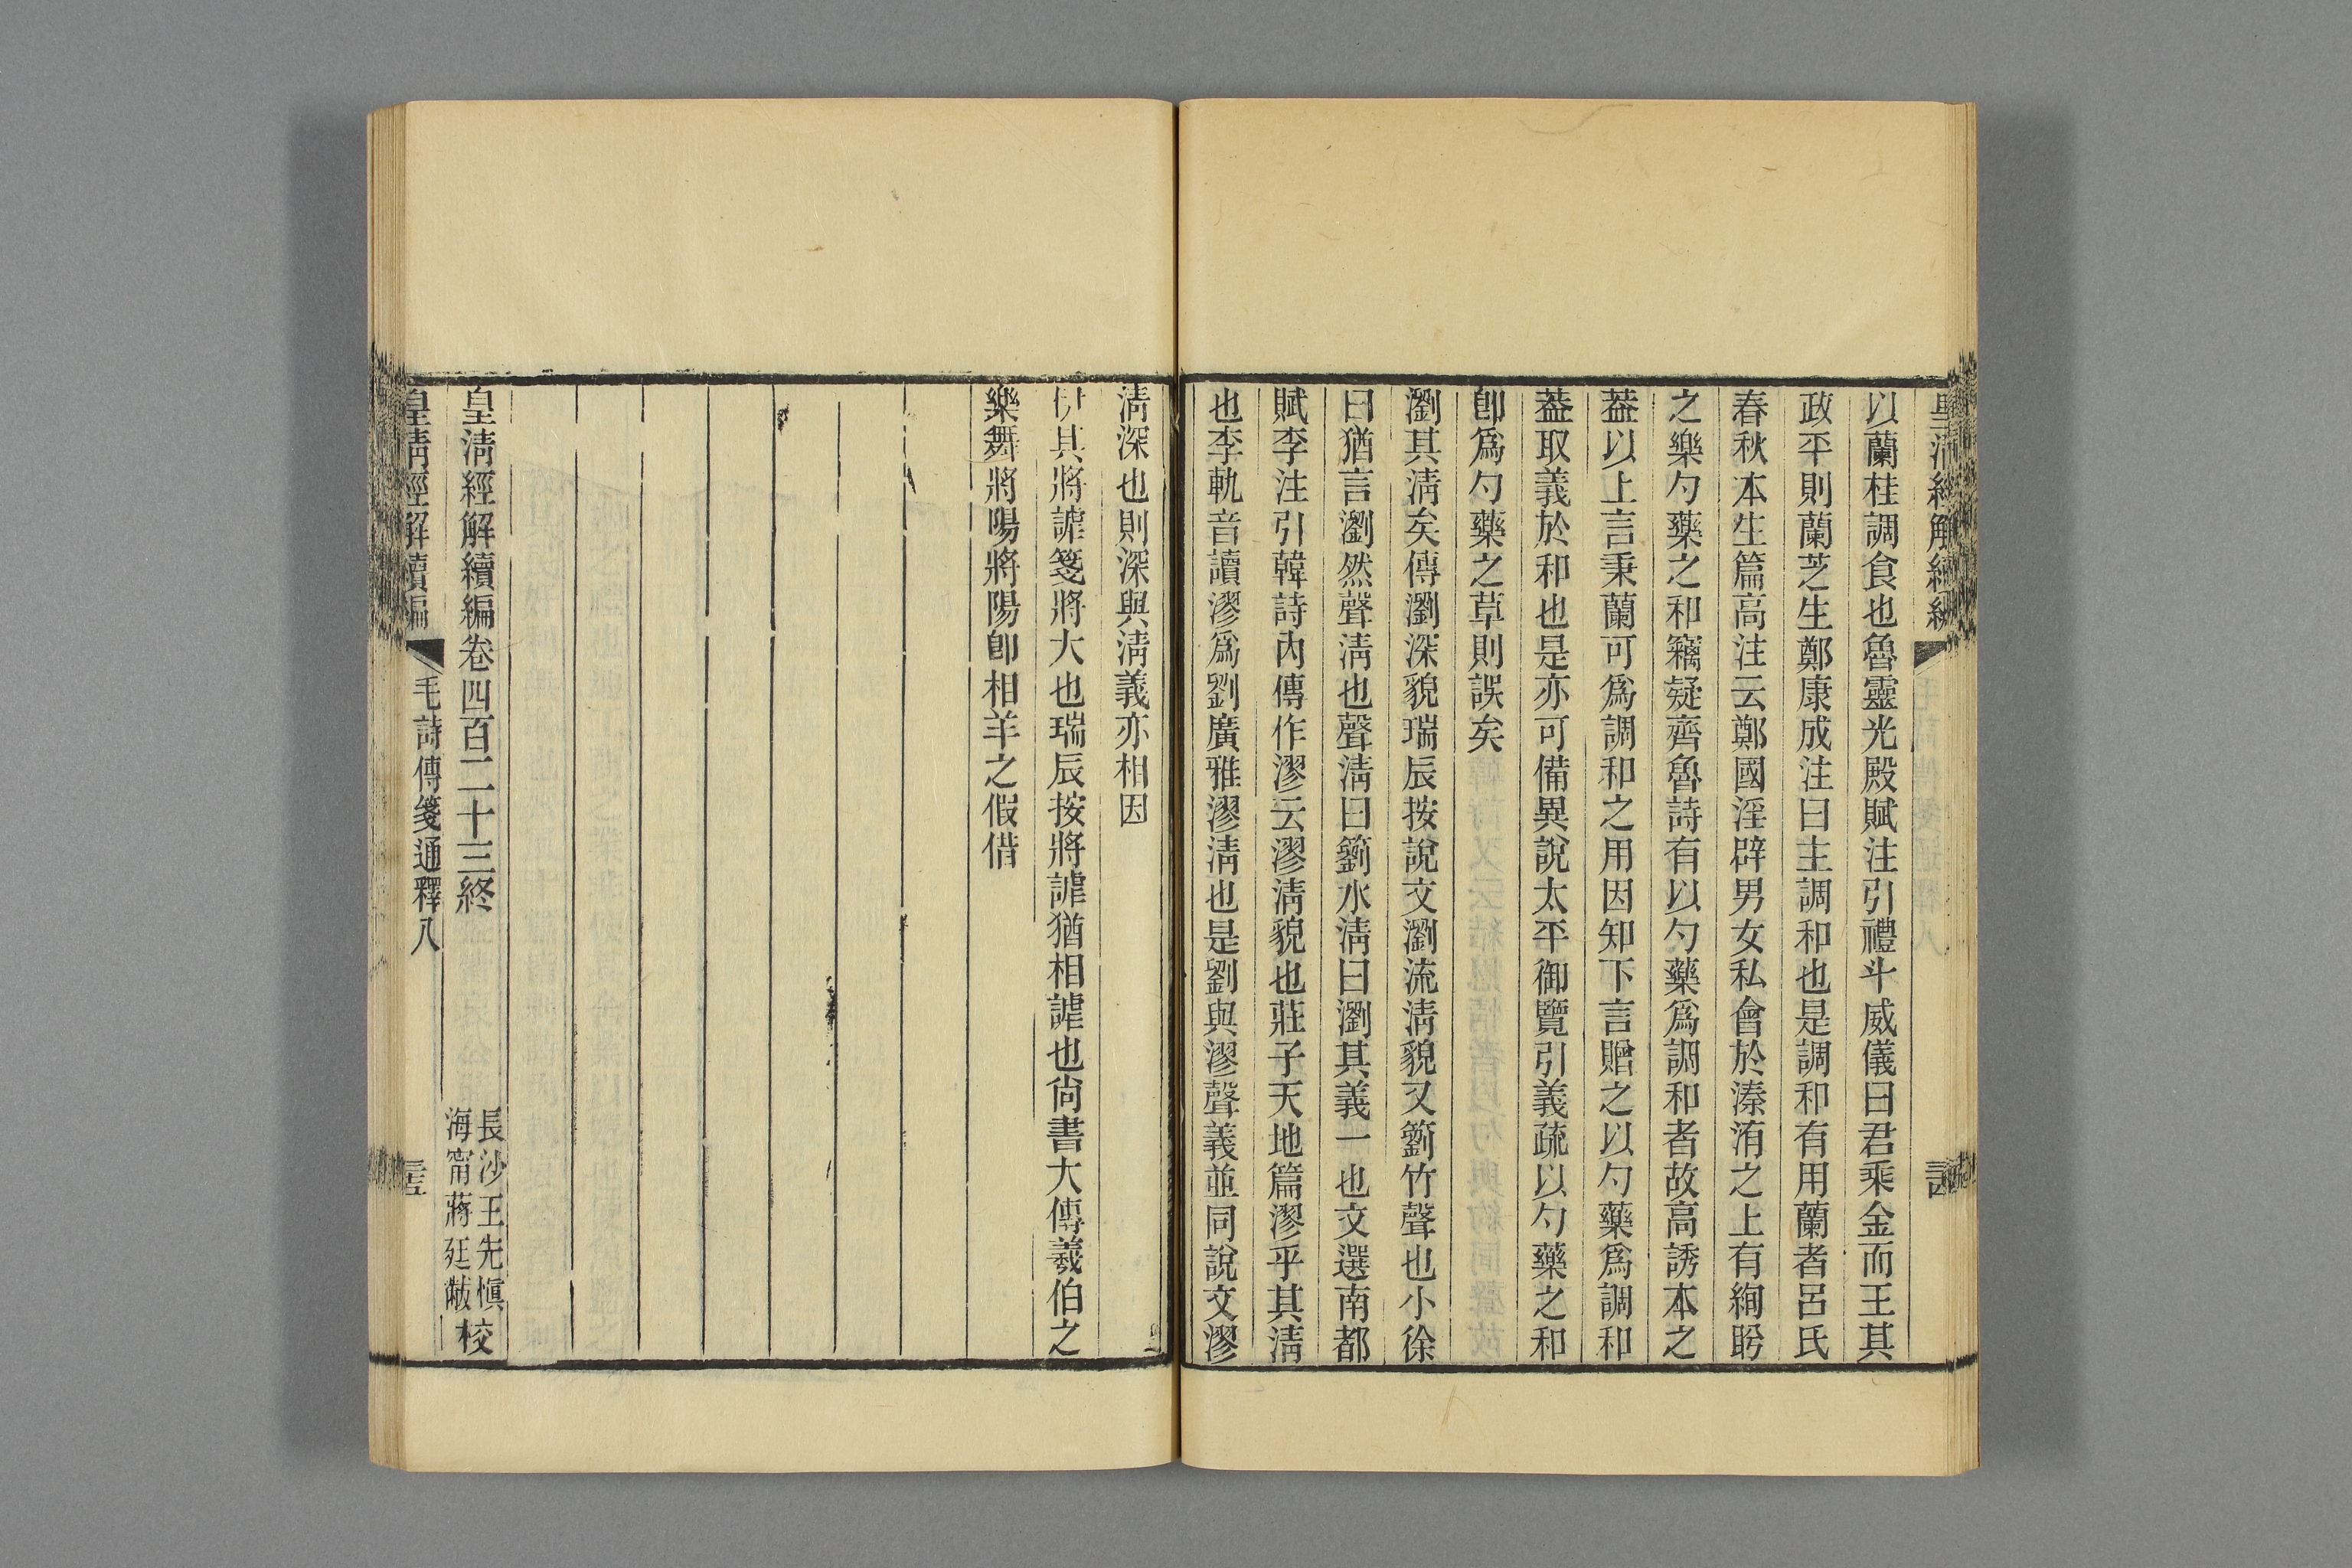 以蘭桂調食也魯靈光殿賦注引禮斗威儀曰君乘金而王其
政平則蘭芝生鄭康成注曰主調和也是調和有用蘭者呂氏
春秋本生篇高注云鄭國淫辟男女私會於溱洧之上有絢盻
之樂勺藥之和竊疑齊魯詩有以勺藥爲調和者故高誘本之
葢以上言秉蘭可爲調和之用因知下言贈之以勺藥爲調和
葢取義於和也是亦可備異說太平御覽引義疏以勺藥之和
卽爲勺藥之草則誤矣
瀏其淸矣傳瀏深貌瑞辰按說文瀏流淸貌又籔竹聲也小徐
曰猶言瀏然聲淸也聲淸曰籔水淸曰瀏其義一也文選南都
賦李注引韓詩內傳作漻云漻淸貌也莊子天地篇漻乎其淸
也李軌音讀漻爲劉廣雅漻淸也是劉與漻聲義並同說文漻
淸深也則深與淸義亦相因
伊其將謔箋將大也瑞辰按將謔猶相謔也尙書大傳羲伯之
樂舞將陽將陽卽相羊之假借
皇淸經解續編卷四百二十三終
長沙王先愼
海甯蔣廷黻
校
皇淸經解續編
毛詩傳箋通釋八